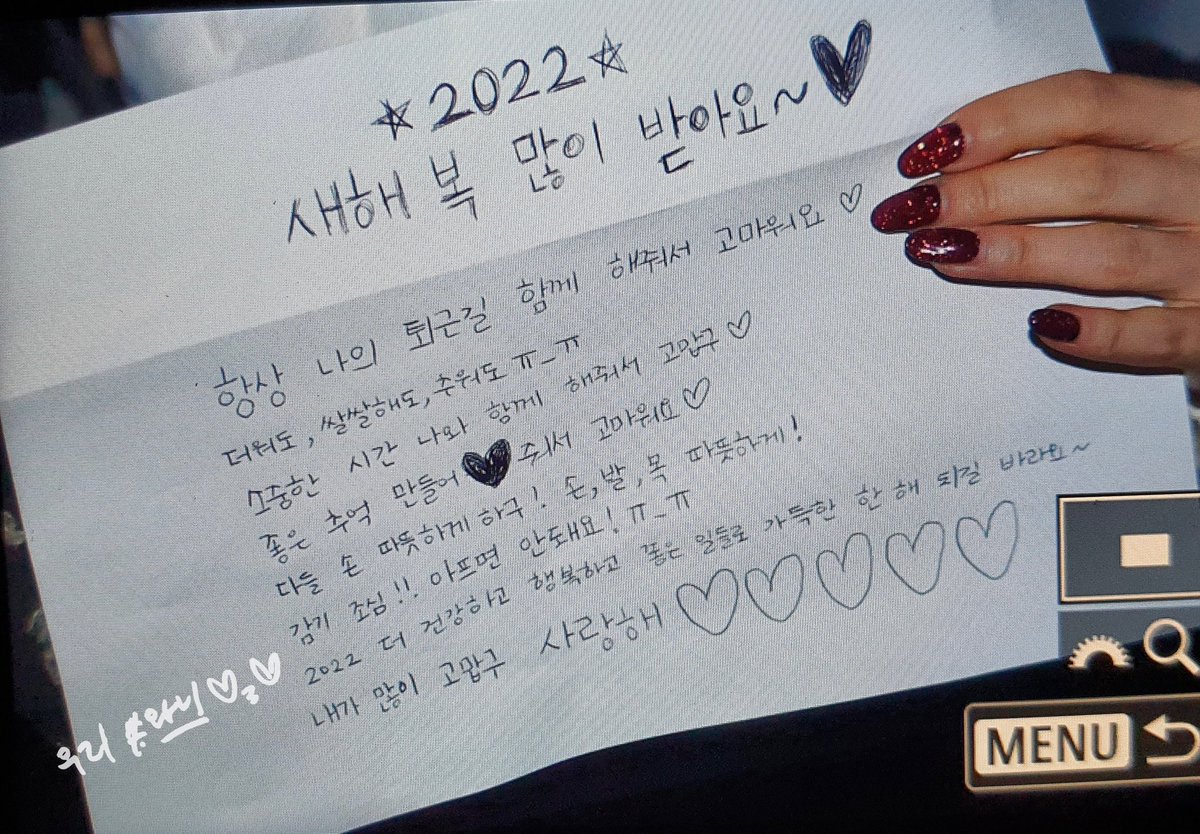 ☆2022☆
새해 복 많이 받아요~♥
항상 나의 퇴근길 함께 해줘서 고마워요♡
더워도, 쌀쌀해도, 추워도 ㅠ_ㅠ
소중한 시간 나와 함께 해줘서 고맙구♡
좋은 추억 만들어♥줘서 고마워요♡
다들 손 따뜻하게 하구! 손, 발, 목 따뜻하게!
감기 조심!! 아프면 안돼요! ㅠ_ㅠ
2022 더 건강하고 행복하고 좋은 일들로 가득한 한 해 되길 바라요~
내가 많이 고맙구 사랑해♡♡♡♡♡
우리
MENU